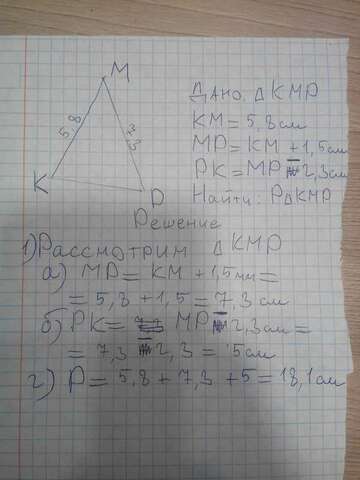 M
5,8
7,3
K
P
Дано: △KMP
KM = 5,8 см
MP = KM + 1,5 см
PK = MP - 2,3 см
Найти: P△KMP
Решение
1) Рассмотрим △KMP
а) MP = KM + 1,5 мм =
= 5,8 + 1,5 = 7,3 см
б) PK = MP - 2,3 см =
= 7,3 - 2,3 = 5 см
2) P = 5,8 + 7,3 + 5 = 18,1 см